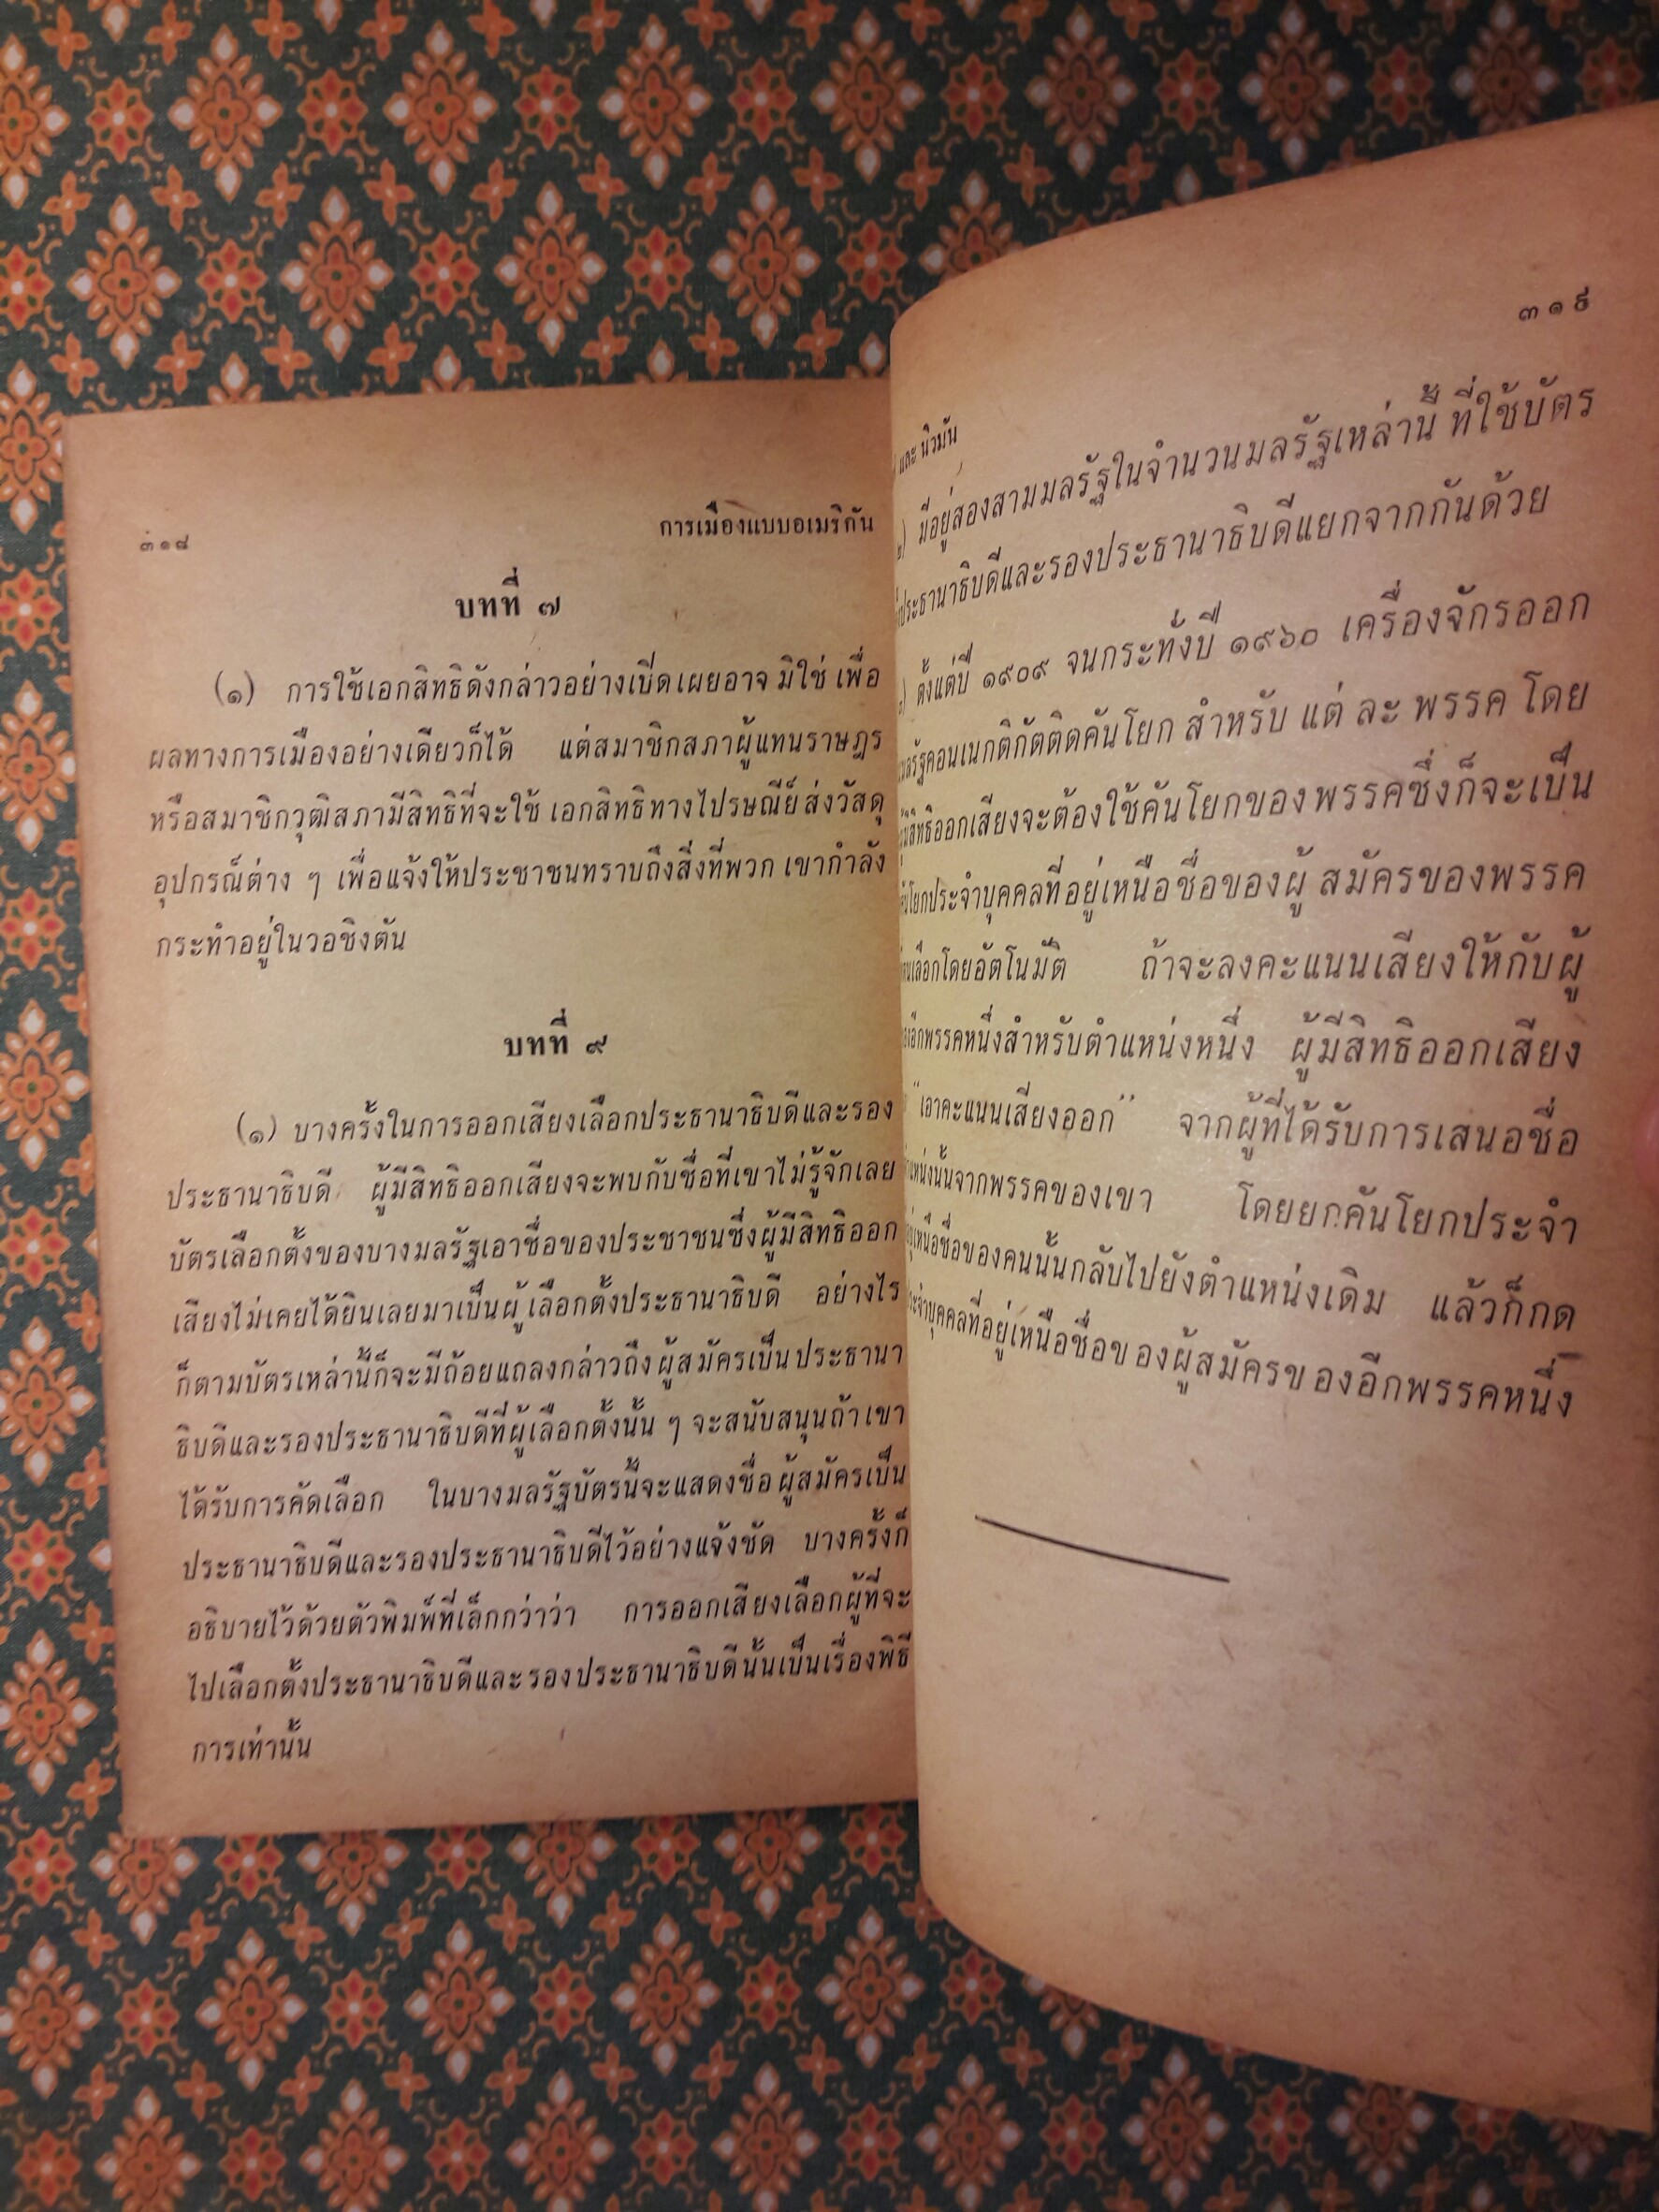 ๓๑๘
การเมืองแบบอเมริกัน
บทที่ ๗
(๑) การใช้เอกสิทธิดังกล่าวอย่างเปิดเผยอาจ มิใช่ เพื่อ
ผลทางการเมืองอย่างเดียวก็ได้ แต่สมาชิกสภาผู้แทนราษฎร
หรือสมาชิกวุฒิสภามีสิทธิที่จะใช้ เอกสิทธิทางไปรษณีย์ ส่งวัสดุ
อุปกรณ์ต่าง ๆ เพื่อแจ้งให้ประชาชนทราบถึงสิ่งที่พวก เขากำลัง
กระทำอยู่ในวอชิงตัน
บทที่ ๙
(๑) บางครั้งในการออกเสียงเลือกประธานาธิบดีและรอง
ประธานาธิบดี ผู้มีสิทธิออกเสียงจะพบกับชื่อที่เขาไม่รู้จักเลย
บัตรเลือกตั้งของบางมลรัฐเอาชื่อของประชาชนซึ่งผู้มีสิทธิออก
เสียงไม่เคยได้ยินเลยมาเป็นผู้ เลือกตั้งประธานาธิบดี อย่างไร
ก็ตามบัตรเหล่านี้ก็จะมีถ้อยแถลงกล่าวถึง ผู้สมัครเป็น ประธานา
ธิบดีและรองประธานาธิบดีที่ผู้เลือกตั้งนั้น ๆ จะสนับสนุนถ้า เขา
ได้รับการคัดเลือก ในบางมลรัฐบัตรนี้จะแสดงชื่อ ผู้สมัครเป็น
ประธานาธิบดีและรองประธานาธิบดีไว้อย่างแจ้งชัด บางครั้งก็
อธิบายไว้ด้วยตัวพิมพ์ที่เล็กกว่าว่า การออกเสียงเลือกผู้ที่จะ
ไปเลือกตั้งประธานาธิบดีและรองประธานาธิบดีนั้นเป็นเรื่องพิธี
การเท่านั้น
๓๑๙
และ นิวมัน
มีอยู่สองสามมลรัฐในจำนวนมลรัฐเหล่านี้ ที่ใช้บัตร
ประธานาธิบดีและรองประธานาธิบดีแยกจากกันด้วย
ตั้งแต่ปี ๑๙๐๙ จนกระทั่งปี ๑๙๖๐ เครื่องจักรออก
คอนเนกติกัตติดคันโยก สำหรับ แต่ ละ พรรค โดย
สิทธิออกเสียงจะต้องใช้คันโยกของพรรคซึ่งก็จะเป็น
โยกประจำบุคคลที่อยู่เหนือชื่อของผู้ สมัครของพรรค
เลือกโดยอัตโนมัติ ถ้าจะลงคะแนนเสียงให้กับผู้
อีกพรรคหนึ่งสำหรับตำแหน่งหนึ่ง ผู้มีสิทธิออกเสียง
"เอาคะแนนเสียงออก" จากผู้ที่ได้รับการเสนอชื่อ
นั้นจากพรรคของเขา โดยยกคันโยกประจำ
เหนือชื่อของคนนั้นกลับไปยังตำแหน่งเดิม แล้วก็กด
บุคคลที่อยู่เหนือชื่อของผู้สมัครของอีกพรรคหนึ่ง